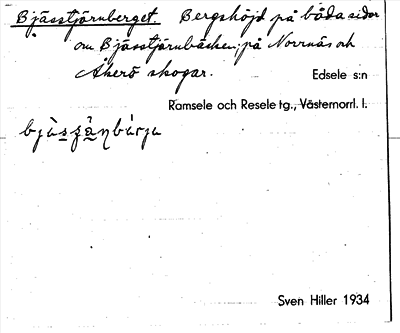 Bjässtjärnberget. Bergshöjd på båda sidor
om Bjässtjärnbäcken; på Norrnäs och
Åkerö skogar.
Edsele s:n
Ramsele och Resele tg., Västernorrl. l.
Sven Hiller 1934